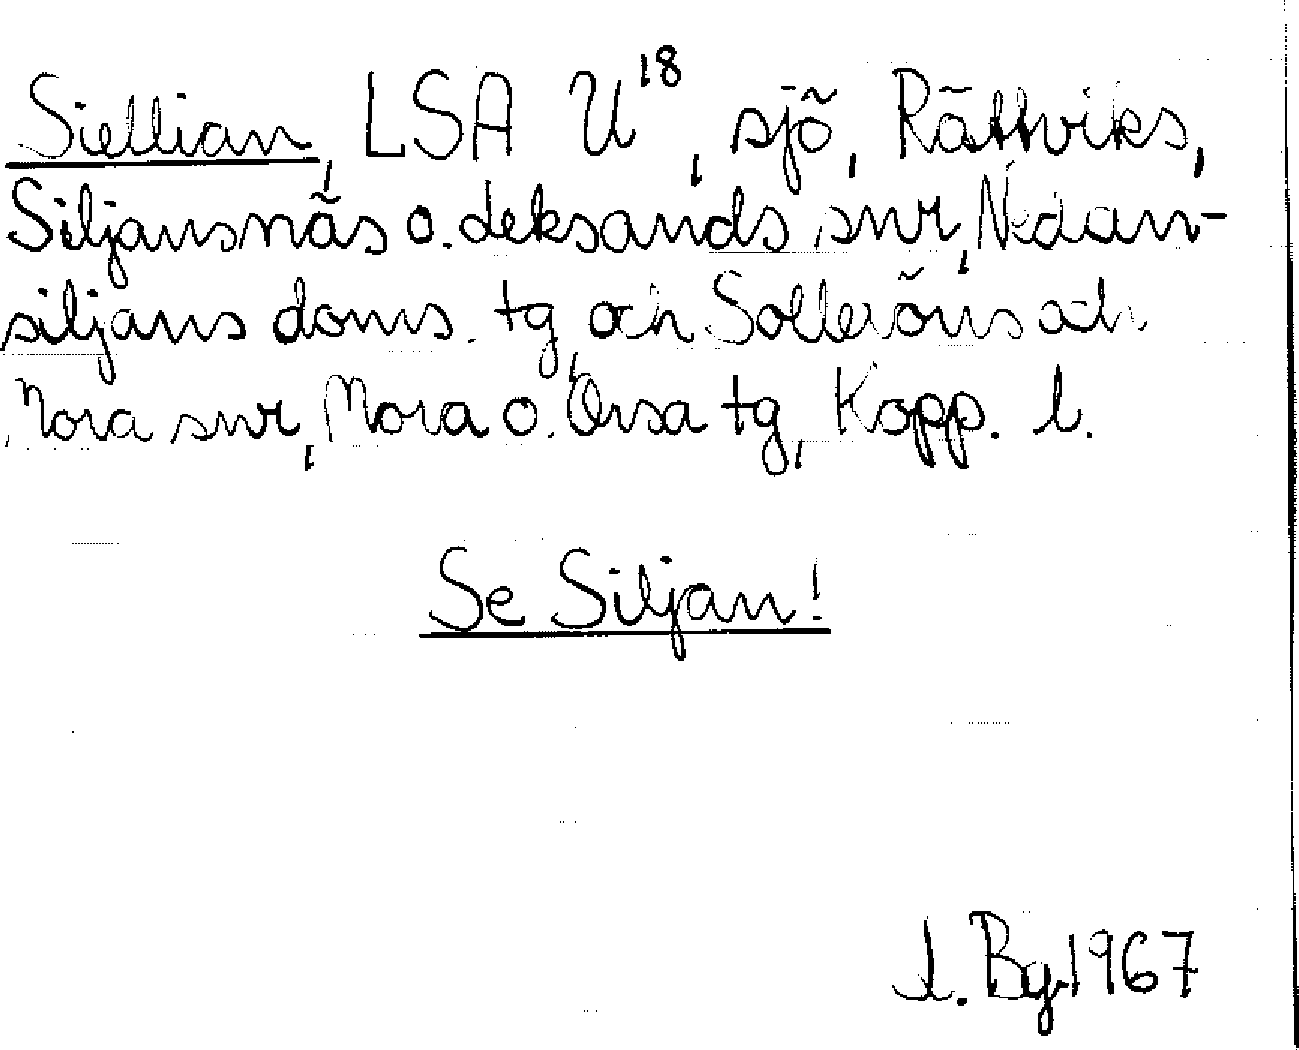 Siellian, LSA U¹⁸, sjö, Rättviks,
Siljansnäs o. Leksands snr, Nedan-
siljans doms. tg och Solleröns och
Mora snr, Mora o. Orsa tg, Kopp. l.
Se Siljan!
I. By 1967